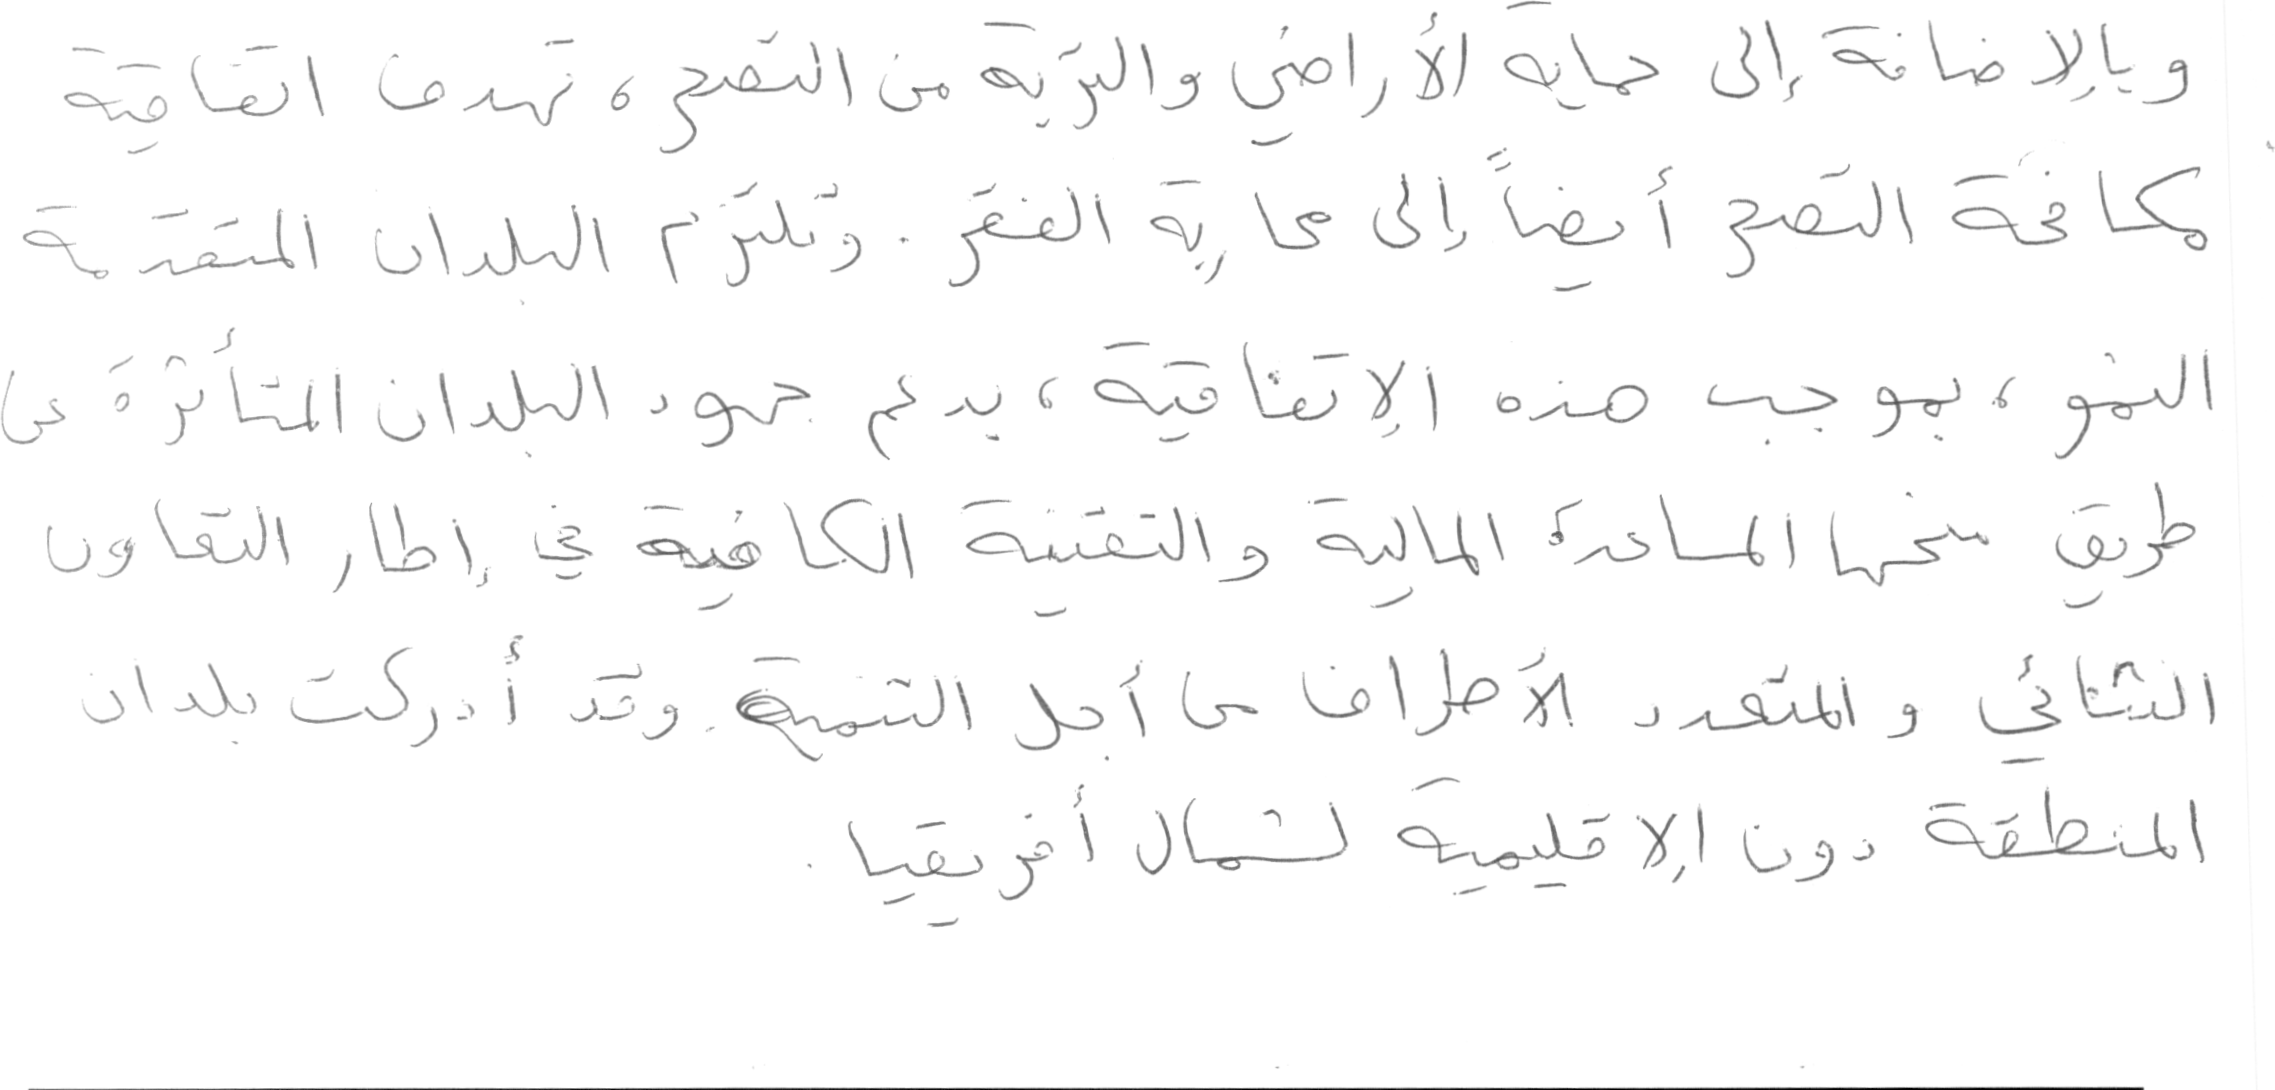 وبالإضافة إلى حماية الأراضي والتربة من التصحر، تهدف اتفاقية
مكافحة التصحر أيضاً إلى محاربة الفقر. وتلتزم البلدان المتقدمة
النمو، بموجب هذه الإتفاقية، بدعم جهود البلدان المتأثرة عن
طريق منحها المساعدة المالية والتقنية الكافية في إطار التعاون
الثنائي والمتعدد الأطراف من أجل التنمية. وقد أدركت بلدان
المنطقة دون الإقليمية لشمال أفريقيا.